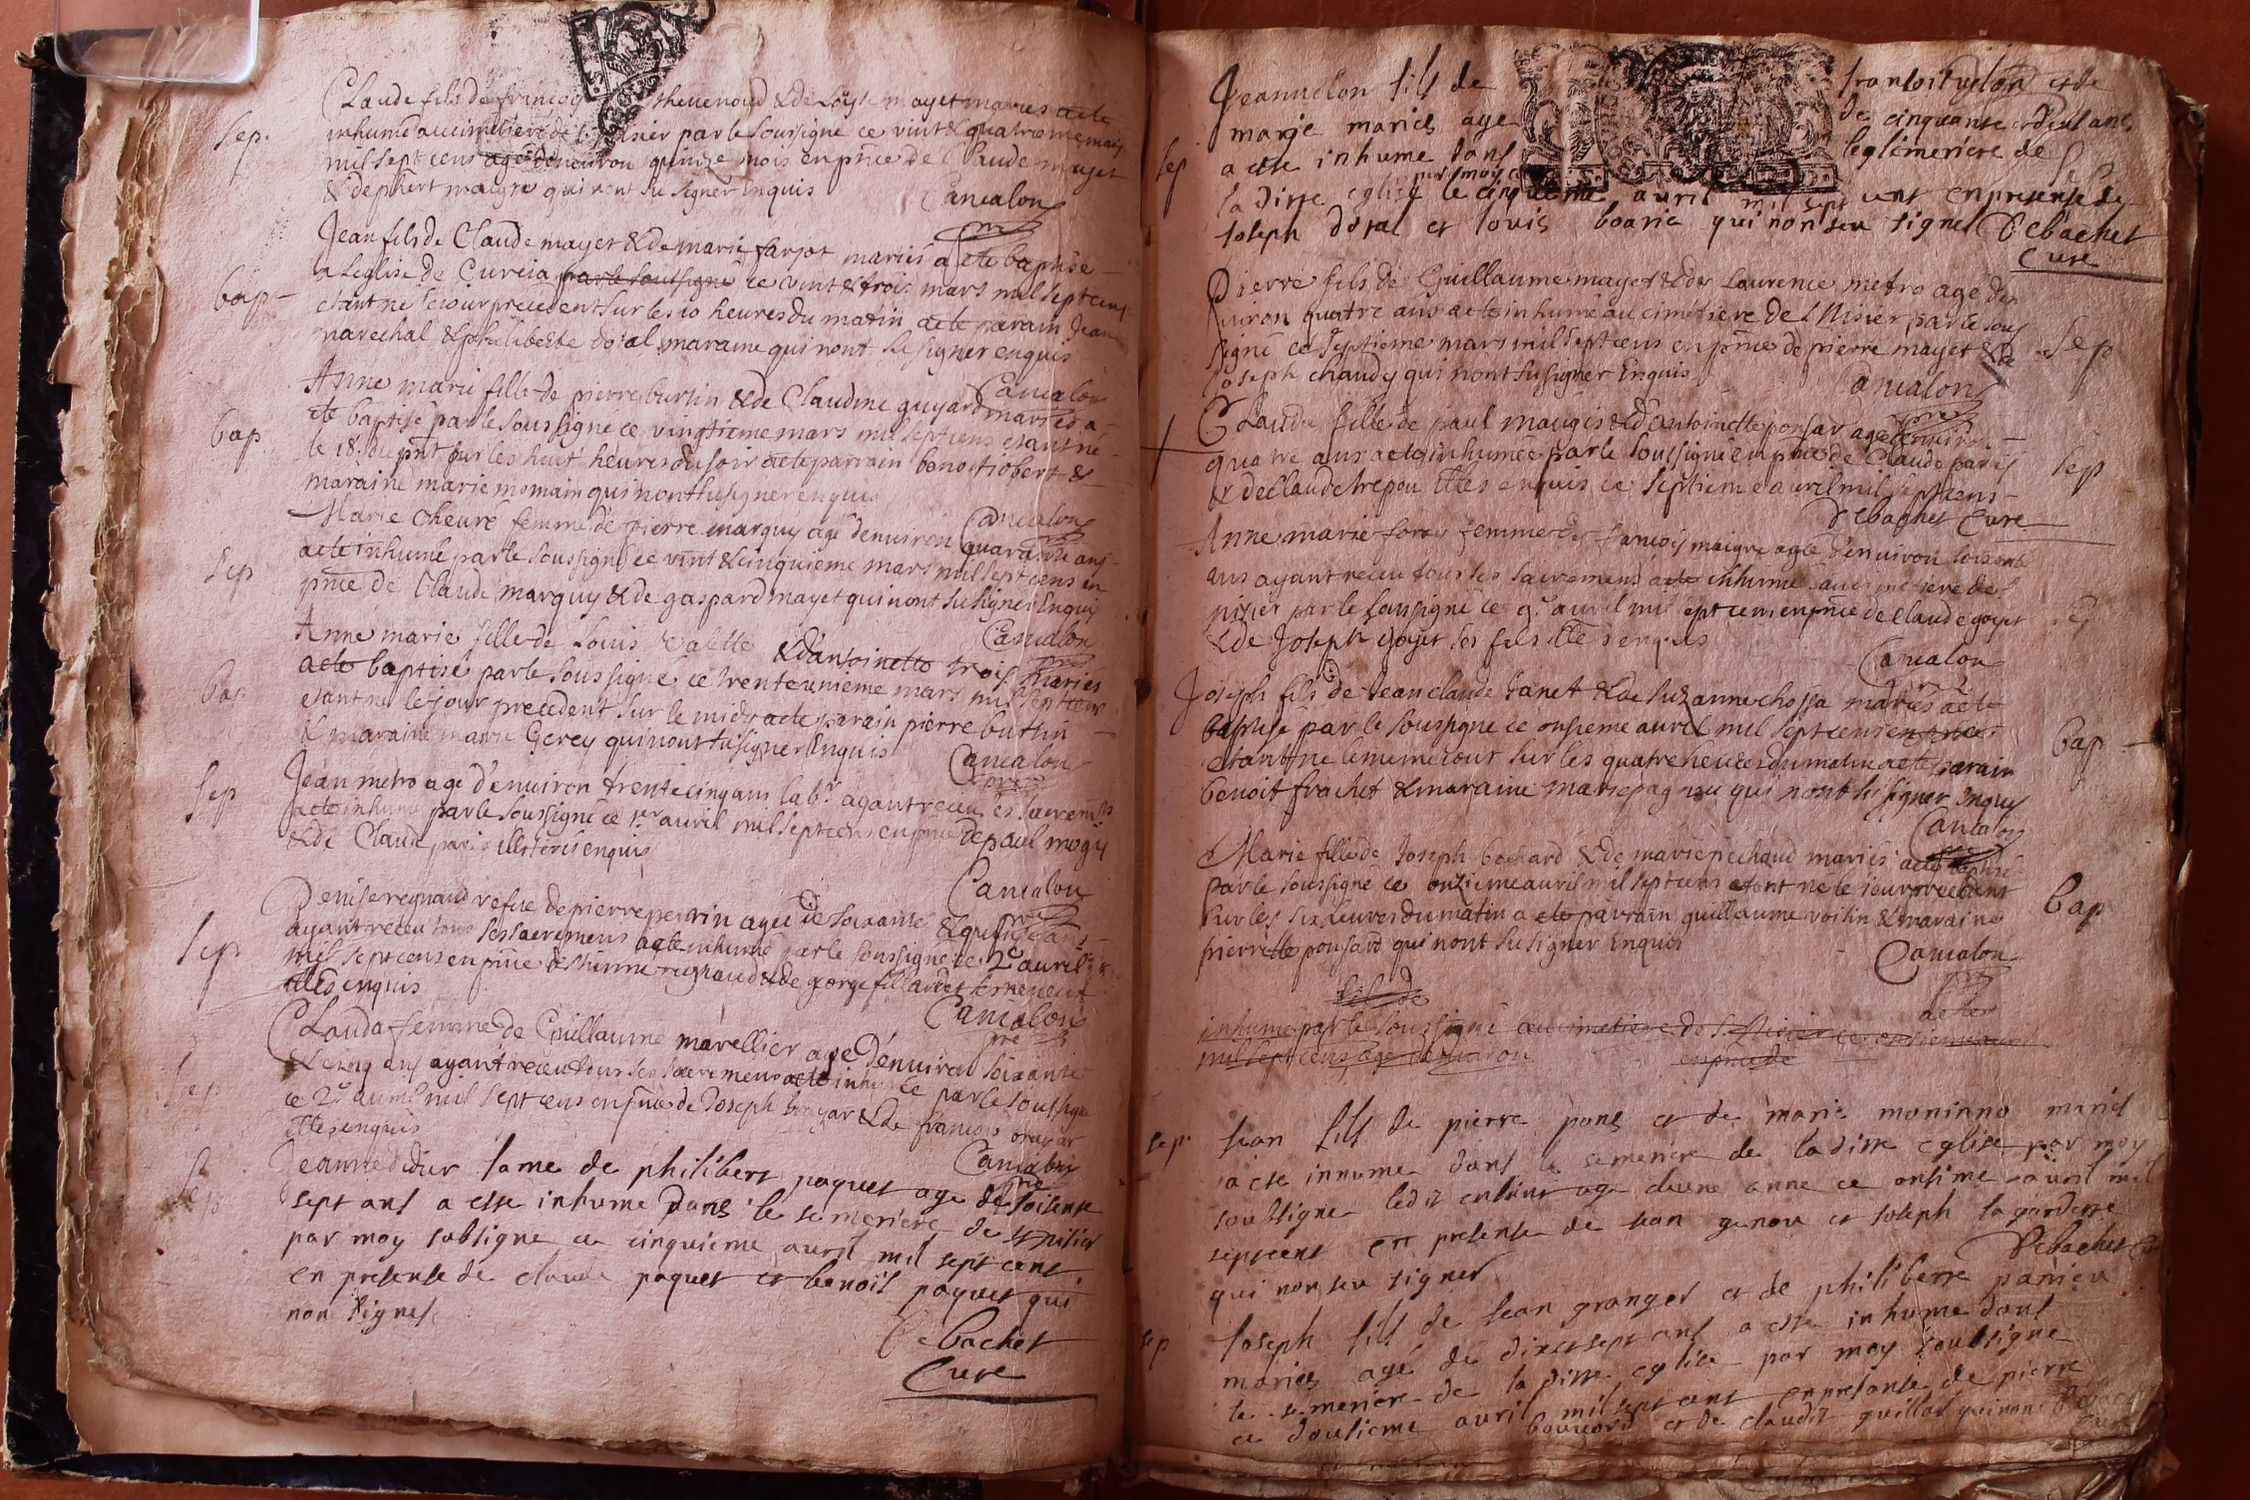 Claude fils de françois thevenoud & de Loyse mayet mariés a ete
sep. inhumé au cimetiere de s. nisier par le soussigné ce vint & quatrieme mars
mil sept cens agé denviron quinze mois en pnce de Claude mayet
& de phbert maigre qui nont su signer enquis
Cancalon
pre
Jean fils de Claude mayet & de marie farjot mariés a ete baptisé
bap a leglise de Curcia par le soussigné ce vint & trois mars mil sept cens
etant ne le jour precedent sur les 10 heures du matin a ete parain Jean
marechal & philiberte doral maraine qui nont su signer enquis
Cancalon
Anne marie fille de pierre burtin & de Claudine guyard mariés a
bap ete baptisé par le soussigné ce vingtieme mars mil sept cens etant né
le 18. du pnt sur les huit heures du soir a ete parrain benoit jobert &
maraine marie momain qui nont su signer enquis
Cancalon
Marie cheuré femme de pierre marguy agé denviron quarante ans
sep a ete inhumé par le soussigné ce vint & cinquieme mars mil sept cens en
pnce de Claude marguy & de gaspard mayet qui nont su signer Enquis
Cancalon
pre
Anne marie fille de Louis valette & dantoinette trois mariés
bap a ete baptisé par le soussigné ce trente unieme mars mil sept cens
etant né le jour precedent sur le midy a ete parain pierre burtin
& maraine marie Gerey qui nont su signer Enquis
Cancalon
pre
Jean metro agé d'environ trente cinq ans lab.r ayant receu les sacremens
sep a ete inhumé par le soussigné ce 1er avril mil sept cens en pnce de paul mogis
& de Claude paris illiterés enquis
Cancalon
pre
Denise regnaud vefue de pierre perrin agée de soixante & quinze ans
sep ayant receu tous ses sacremens a ete inhumé par le soussigné ce 2e avril
mil sept cens en pnce destienne regnaud & de george filliardet ses neveux
illes enquis
Cancalon
pre
Clauda femme de Guillaume marellier agé d'environ soixante
sep & cinq ans ayant receu tous ses sacremens a ete inhumé par le soussigné
ce 2e avril mil sept cens en pnce de Joseph & de françois
illes enquis
Cancalon
pre
Jeanne didier fame de philibert paquet age de soisente
sep sept ans a este inhume dans le semeriere de st nisier
par moy sobsigne ce cinquieme auril mil sept cent
en presense de claude paquet et benoist paquet qui
non signes
Debachet
Cure
Jean fils de francois et de
marie maries age de cinquante et deux ans
sep a este inhume dans leglimeriere de
la ditte eglise par moy le cinquieme auril mil sept cent en presense de
Joseph doral et louis boarie qui non seu signer Debachet
Cure
Pierre fils de Guillaume mayet & de Laurence metro agé den
viron quatre ans a ete inhumé au cimetiere de s Nisier par le sous
signé ce septieme mars mil sept cens en pnce de pierre mayet & de sep
Joseph chaudy qui nont su signer Enquis
Cancalon
pre
Clauda fille de paul maugis & d'antoinette ponsar agée denviron
quatre ans a ete inhumée par le soussigné en pnce de Claude paris sep
& de Claude trepou illes enquis ce septieme avril mil sept cens
Debachet Cure
Anne marie femme de francois maigre agée d'environ soixante
ans ayant receu tous ses sacremens a ete inhumé au cimetiere de s
nisier par le soussigné ce 9e avril mil sept cens en pnce de Claude goyet sep
& de Joseph goyet ses fils illes enquis
Cancalon
pre
Joseph fils de Jean claude Janet & de suzanne chossa mariés a ete
baptisé par le soussigné ce onzieme avril mil sept cens
etant né le meme jour sur les quatre heures du matin a ete parain bap
benoit frachet & maraine marie pagneu qui nont su signer Enquis
Cancalon
Marie fille de Joseph bochard & de marie pechaud mariés a ete baptisé
par le soussigné ce onzieme avril mil sept cens etant né le jour precedent
sur les six heures du matin a ete parrain guillaume voisin & maraine bap
pierrette ponsard qui nont su signer Enquis
Cancalon
pre
fils de
a ete
inhumé par le soussigné au cimetiere de s. Nisier ce onzieme avril
mil sept cens agé denviron en pnce de
sep. Jean fils de pierre pons et de marie moninno maries
a ete inhume dans le semeriere de la ditte eglise par moy
soubsigne ledit enfant age dune anne ce onsime auril mil
septcent en presense de Jean genou et Joseph lagardette
qui non seu signer Debachet Cure
sep Joseph fils de Jean granger et de philiberte parrieu
maries agé de dixetsept ans a este inhume dans
le semerier de la ditte eglise par moy soubsigne
ce dousieme auril mil sept cent en presante de pierre
bouuard et de claude guillot qui non
Cure